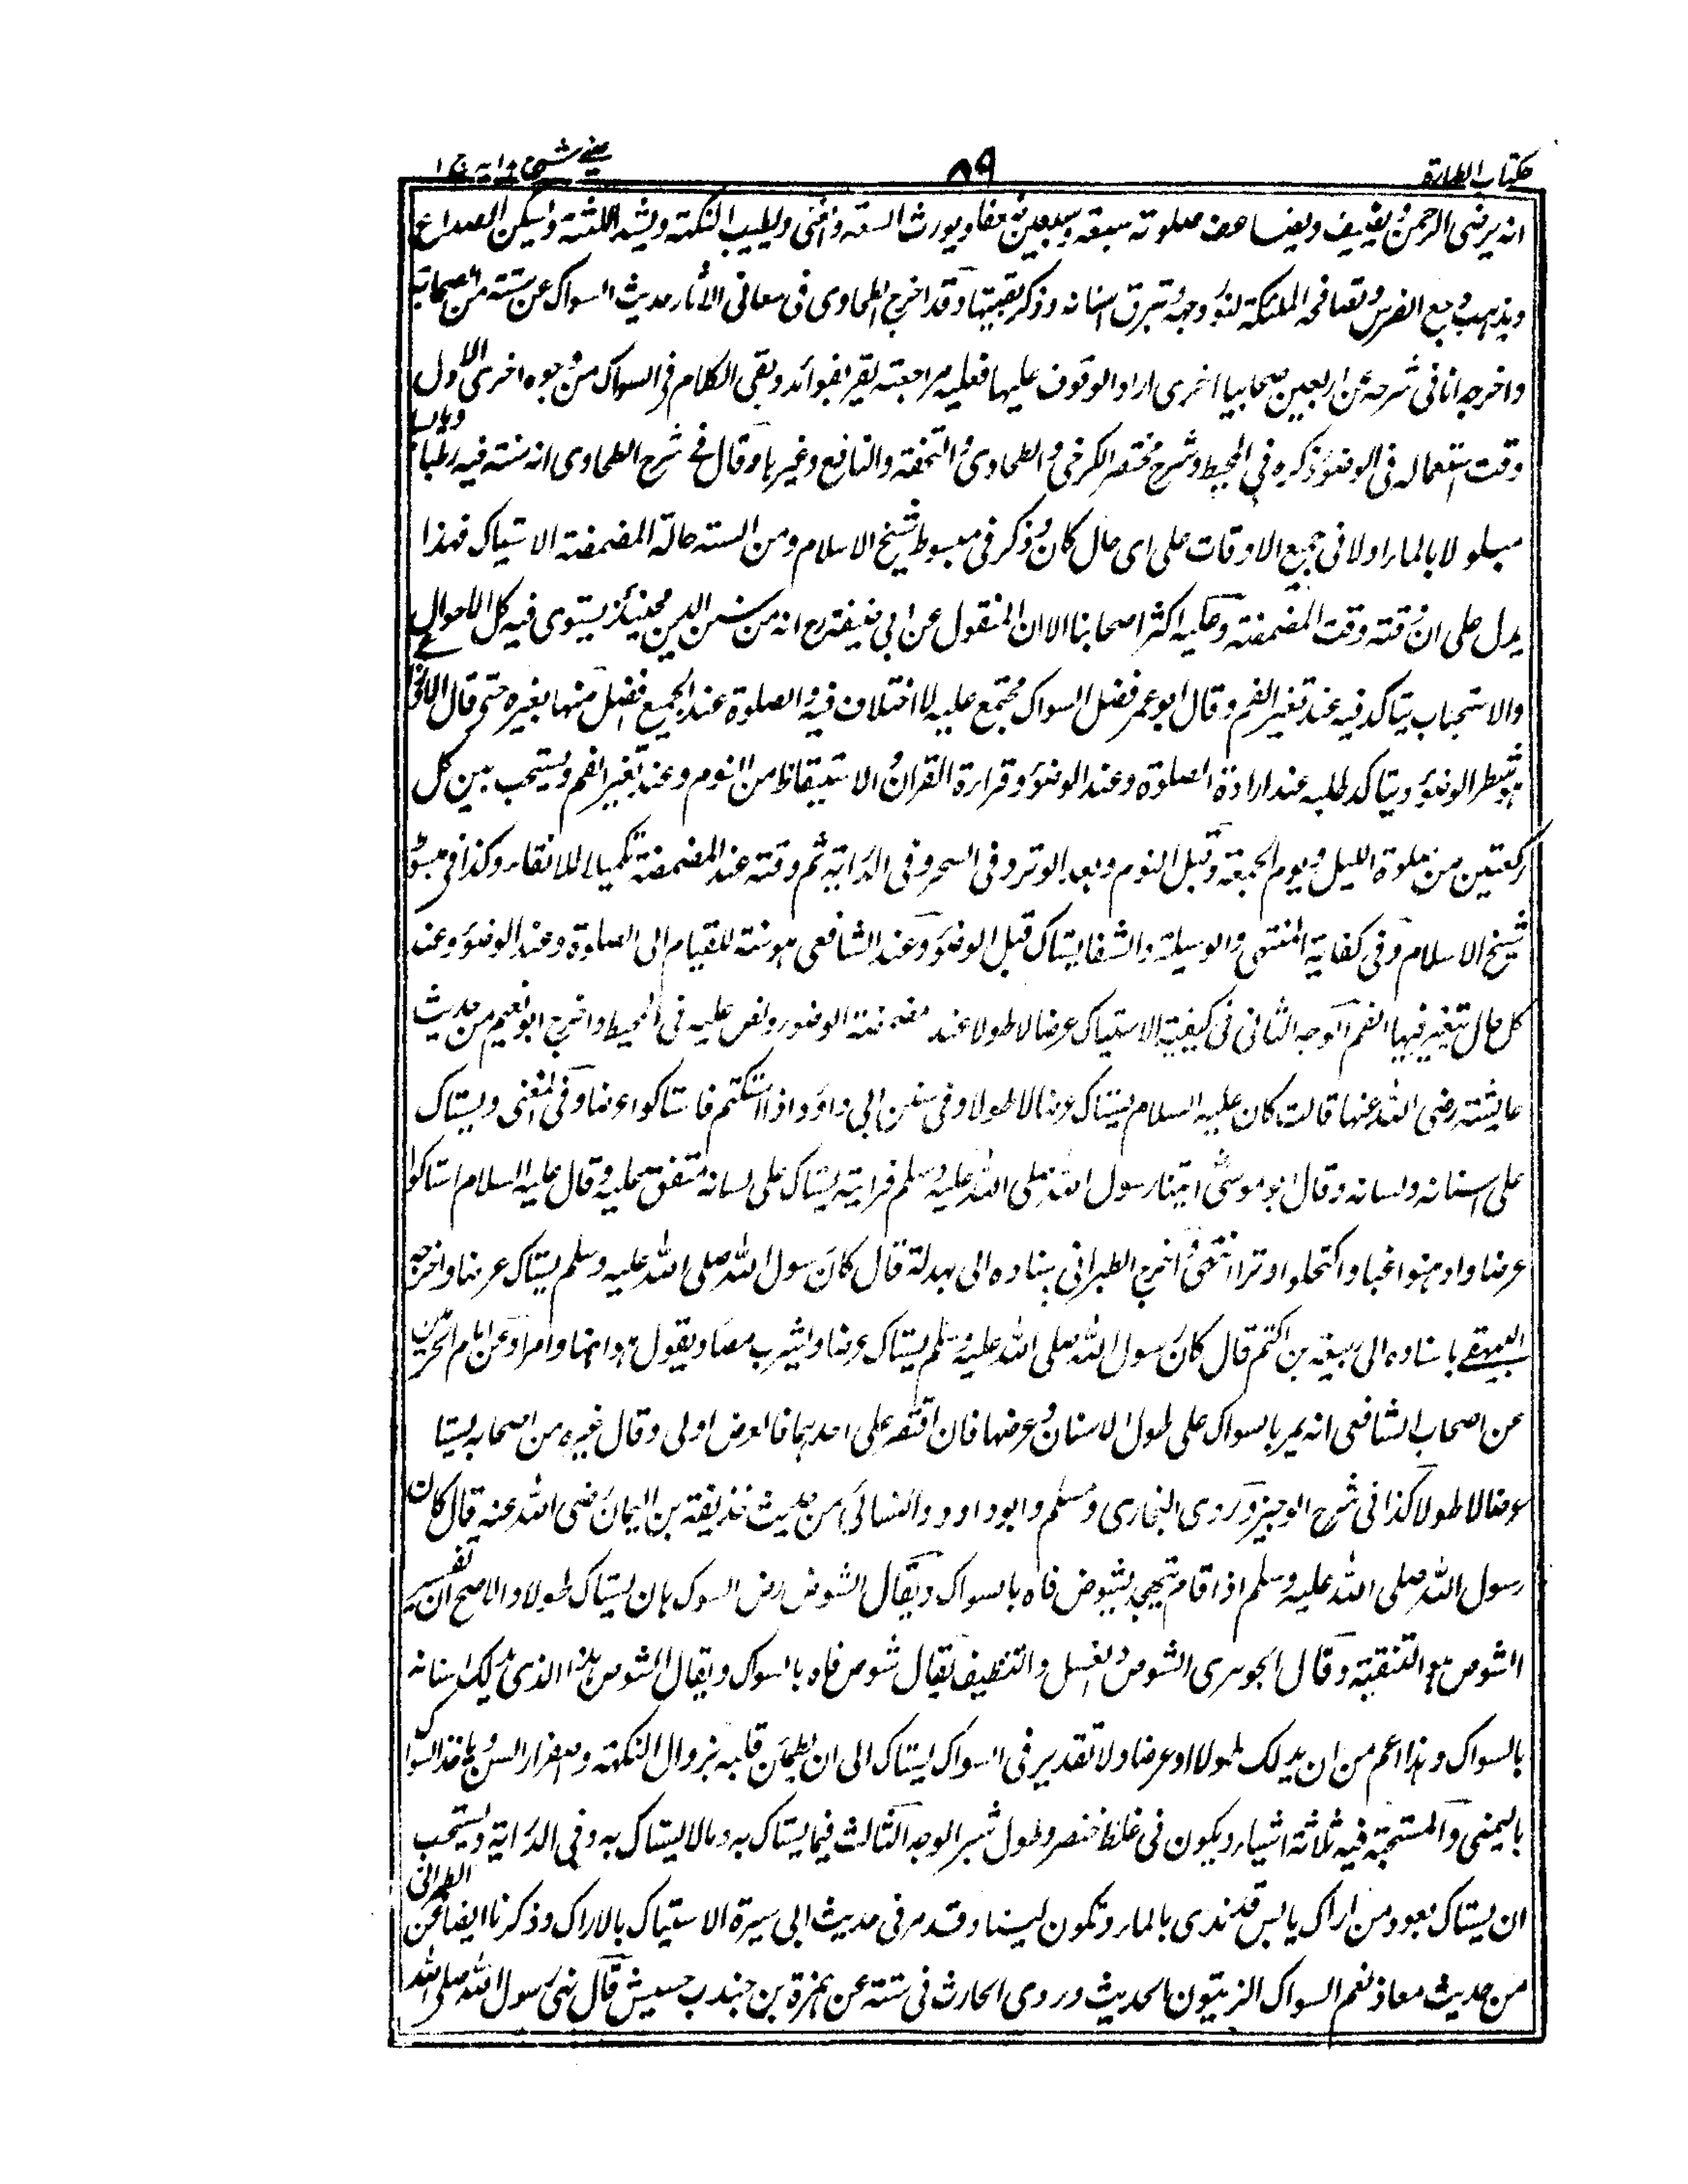 كتاب الطهارة
٨٩
عيني شرح هداية ج ١
انه يرضى الرحمن ويضاعف صلوته سبعة وسبعين ضعفا ويورث السعة والغنى ويطيب النكهة ويشد اللثة ويسكن الصداع
ويذهب وجع الضرس وتصافحه الملئكة لنور وجهه وتبرق اسنانه وذكر بقيتها وقد اخرج الطحاوى فى معانى الاثار حديث السواك عن ستة من الصحابة
واخرجه انا فى شرحه عن اربعين صحابيا اخرى اراد الوقوف عليها فعليه مراجعته يقر بفوائد وبقى الكلام فى السواك من وجوه اخرى الاول
وقت استعماله فى الوضوء ذكره فى المحيط وشرح مختصر الكرخى والطحاوى والتحفة والنافع وغيرها وقال فى شرح الطحاوى انه سنة فيه رطبا
مبلولا بالماء اولا فى جميع الاوقات على اى حال كان وذكر فى مبسوط شيخ الاسلام ومن السنة حالة المضمضة الاستياك فهذا
يدل على ان وقته وقت المضمضة وعليه اكثر اصحابنا الا ان المنقول عن ابى حنيفة رح انه من سنن الدين فحينئذ يستوى فيه كل الاحوال
والاستحباب يتاكد فيه عند تغير الفم وقال ابو عمر فضل السواك مجتمع عليه لا اختلاف فيه والصلوة عند الجميع افضل منها بغيره حتى قال الاوزاعى
شطر الوضوء ويتاكد طلبه عند ارادة الصلوة وعند الوضوء وقراءة القران والاستيقاظ من النوم وعند تغير الفم ويستحب بين كل
ركعتين من صلوة الليل ويوم الجمعة وقبل النوم وبعد الوتر وفى السحر وفى الدراية ثم وقته عند المضمضة تكميلا للانقاء وكذا فى مبسوط
شيخ الاسلام وفى كفاية المنتهى والوسيلة والشفا يستاك قبل الوضوء وعند الشافعى هو سنة للقيام الى الصلوة وعند الوضوء وعند
كل حال تتغير فيها الفم الوجه الثانى فى كيفية الاستياك عرضا لا طولا عند مضمضة الوضوء ونص عليه فى المحيط واخرج ابو نعيم من حديث
عايشة رضى الله عنها قالت كان عليه السلام يستاك عرضا لا طولا وفى سنن ابى داود اذا استكتم فاستاكوا عرضا وفى المغنى ويستاك
على اسنانه ولسانه وقال ابو موسى اتينا رسول الله صلى الله عليه وسلم فرايته يستاك على لسانه متفق عليه وقال عليه السلام استاكوا
عرضا وادهنوا غبا واكتحلوا وترا انتهى واخرج الطبرانى باسناده الى بهدلة قال كان رسول الله صلى الله عليه وسلم يستاك عرضا واخرجه
البيهقى باسناده الى ربيعة بن اكتم قال كان رسول الله صلى الله عليه وسلم يستاك عرضا ويشرب مصا ويقول هو اهنا وامرا وعن امام الحرمين
من اصحاب الشافعى انه يمر بالسواك على طول الاسنان وعرضها فان اقتصر على احدهما فالعرض اولى وقال غيره من اصحابه يستاك
عرضا لا طولا كذا فى شرح الوجيز وروى البخارى ومسلم وابو داود والنسائى من حديث حذيفة بن اليمان رضى الله عنه قال كان
رسول الله صلى الله عليه وسلم اذا قام يتهجد يشوص فاه بالسواك ويقال الشوص رض السوك بان يستاك طولا والاصح ان تفسير
الشوص هو التنقية وقال الجوهرى الشوص الغسل والتنظيف يقال شوص فاه بالسواك ويقال الشوص هذا الذى يدلك اسنانه
بالسواك وهذا اعم من ان يدلك طولا او عرضا ولا تقدير فى السواك يستاك الى ان يطمان قلبه بزوال النكهة واصفرار السن وياخذ السواك
باليمنى والمستحبة فيه ثلاثة اشياء ويكون فى غلظ خنصر وطول شبر الوجه الثالث فيما يستاك به وما لا يستاك به وفى الدراية ويستحب
ان يستاك بعود من اراك يابس قد ندى بالماء وتكون لينا وقد مر فى حديث ابى سبرة الاستياك بالاراك وذكرنا ايضا عن الطبرانى
من حديث معاذ نعم السواك الزيتون الحديث وروى الحارث فى عن ضمرة بن حبيب قال نهى رسول الله صلى الله